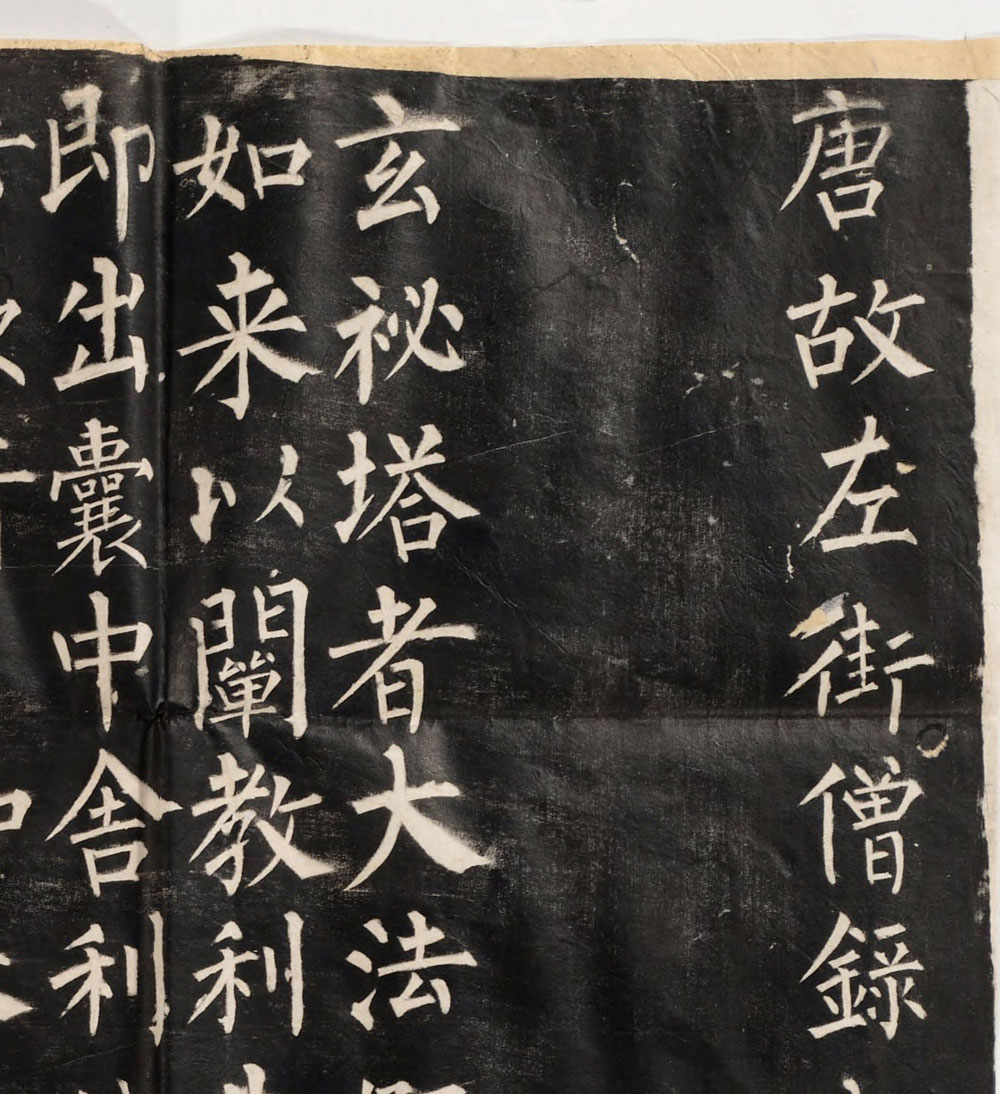 唐故左街僧錄
玄祕塔者大法
如来以闡教利
即出囊中舎利